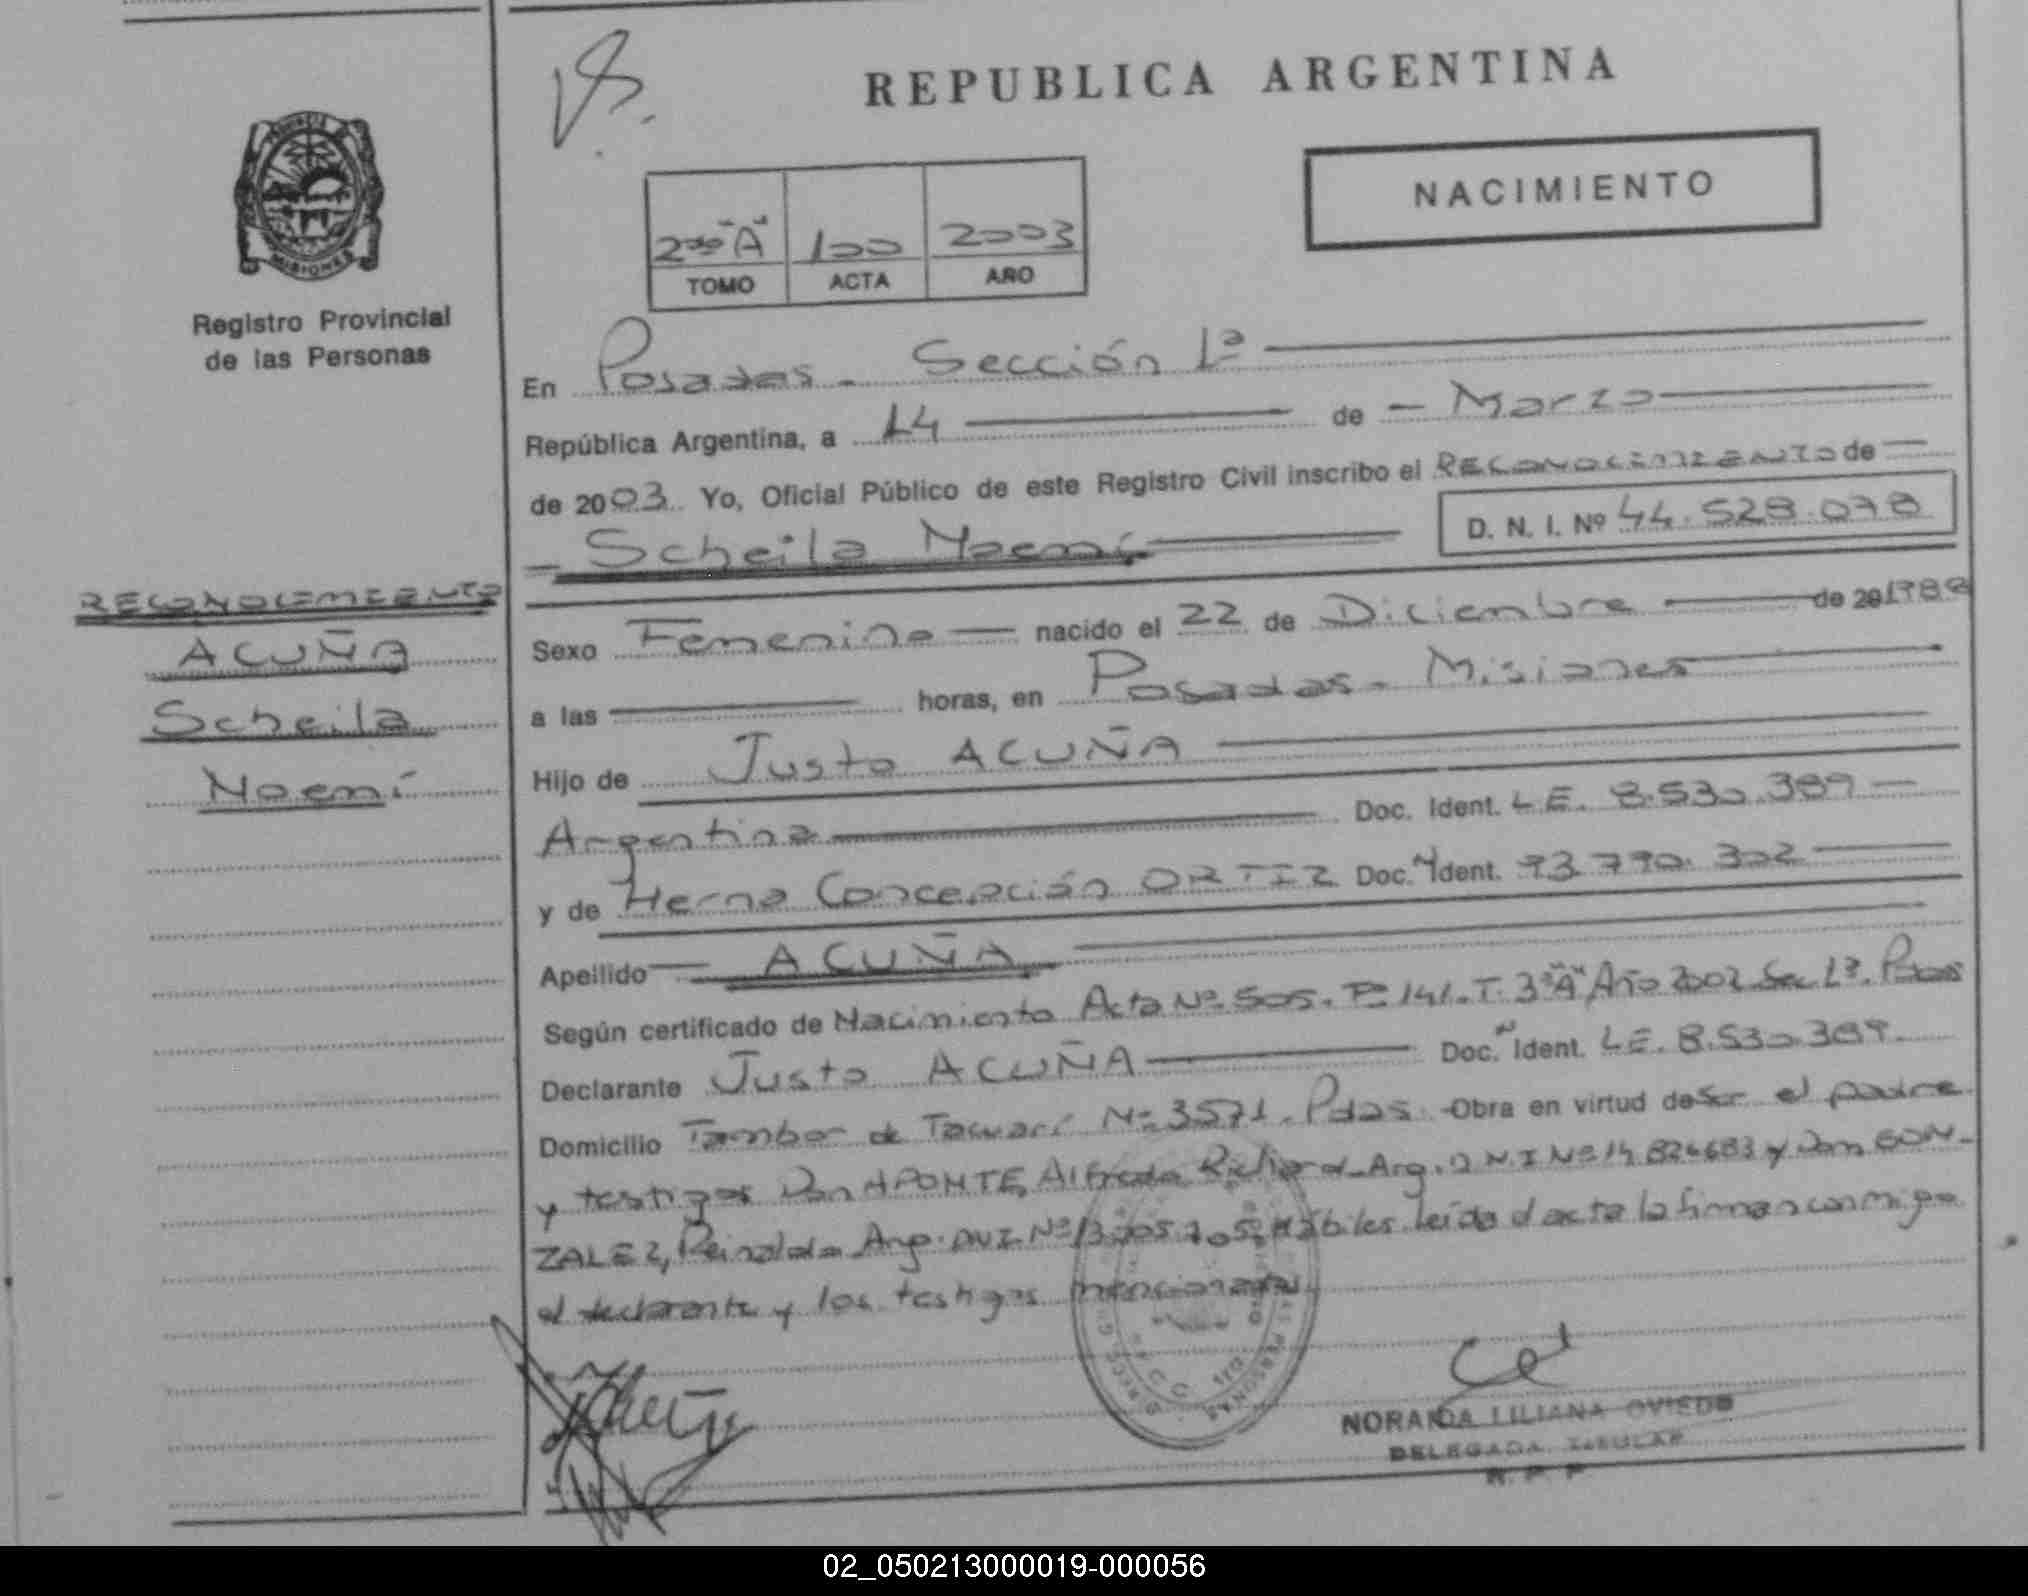 REPUBLICA ARGENTINA
NACIMIENTO
PROVINCIA DE
MISIONES
Registro Provincial
de las Personas
2do "A" 100 2003
TOMO ACTA AÑO
En Posadas - Sección 1ª
República Argentina, a 14 de - Marzo
de 2003. Yo, Oficial Público de este Registro Civil inscribo el RECONOCIMIENTO de
Scheila Noemí D. N. I. Nº 44.528.078
RECONOCIMIENTO
ACUÑA
Scheila
Noemí
Sexo Femenino nacido el 22 de Diciembre de 20
a las horas, en Posadas - Misiones
Hijo de Justo ACUÑA
Argentina Doc. Ident. L E. 8.530.389
y de Herna Concepción ORTIZ Doc. Ident. 93.790.302
Apellido ACUÑA
Según certificado de Nacimiento Acta Nº 505. Fº 141. T. 3º "A" Año 2002 Sec. 1ª. Pdas
Declarante Justo ACUÑA Doc. Ident. LE. 8.530.389.
Domicilio Tambor de Tacuarí Nº 3571. Pdas. Obra en virtud de ser el padre
y testigos Don APONTE, Alfredo Richard Arg. D N.I Nº 14 824683 y Don GON-
ZALEZ, Reinaldo Arg. DNI Nº hábiles leída el acta la firman conmigo
el declarante y los testigos mencionados.
NORAIDA LILIANA OVIEDO
DELEGADA TITULAR
R. P. P
02_050213000019-000056